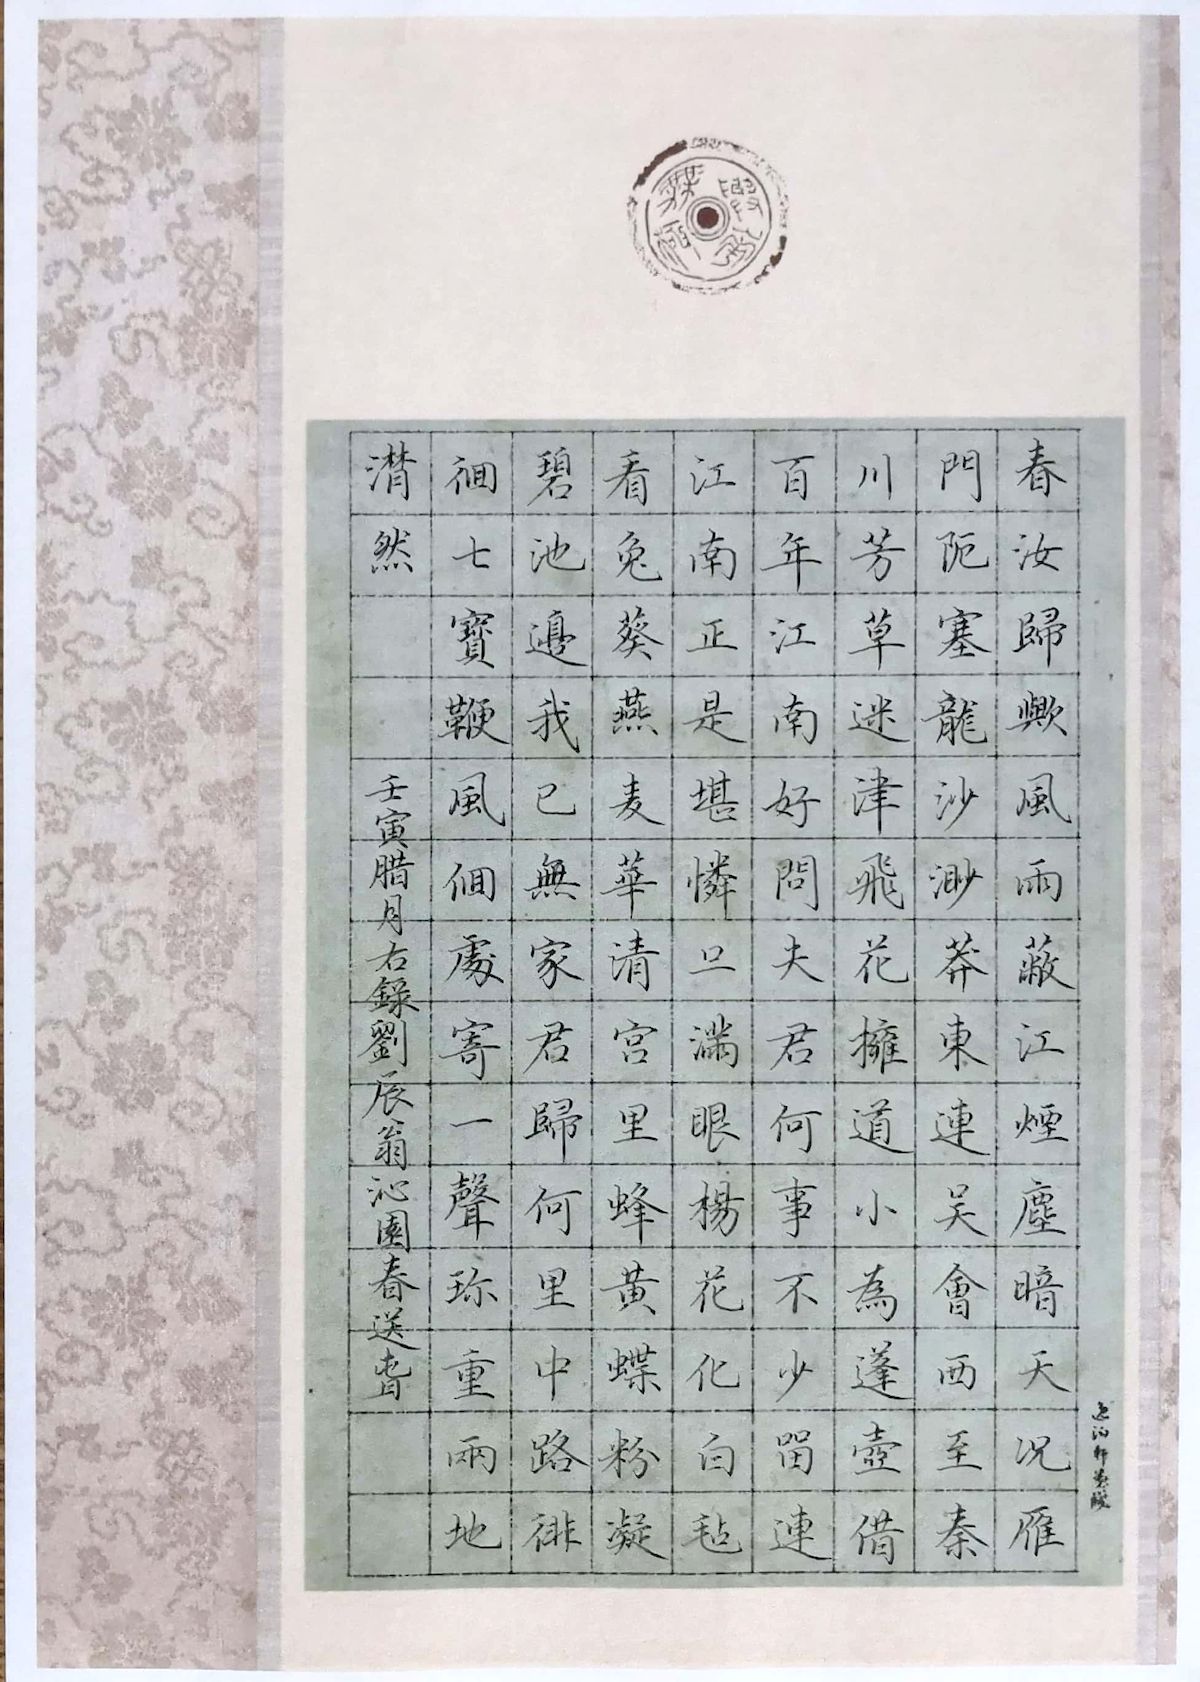 春汝歸歟風雨蔽江煙塵暗天况雁
門阨塞龍沙渺莽東連吴會西至秦
川芳草迷津飛花擁道小為蓬壺借
百年江南好問夫君何事不少留連
江南正是堪憐㫖滿眼楊花化白毡
看兔葵燕麦華清宮里蜂黃蝶粉凝
碧池邊我已無家君歸何里中路徘
徊七寶鞭風徊處寄一聲珎重兩地
潸然
壬寅腊月右錄劉辰翁沁園春送春